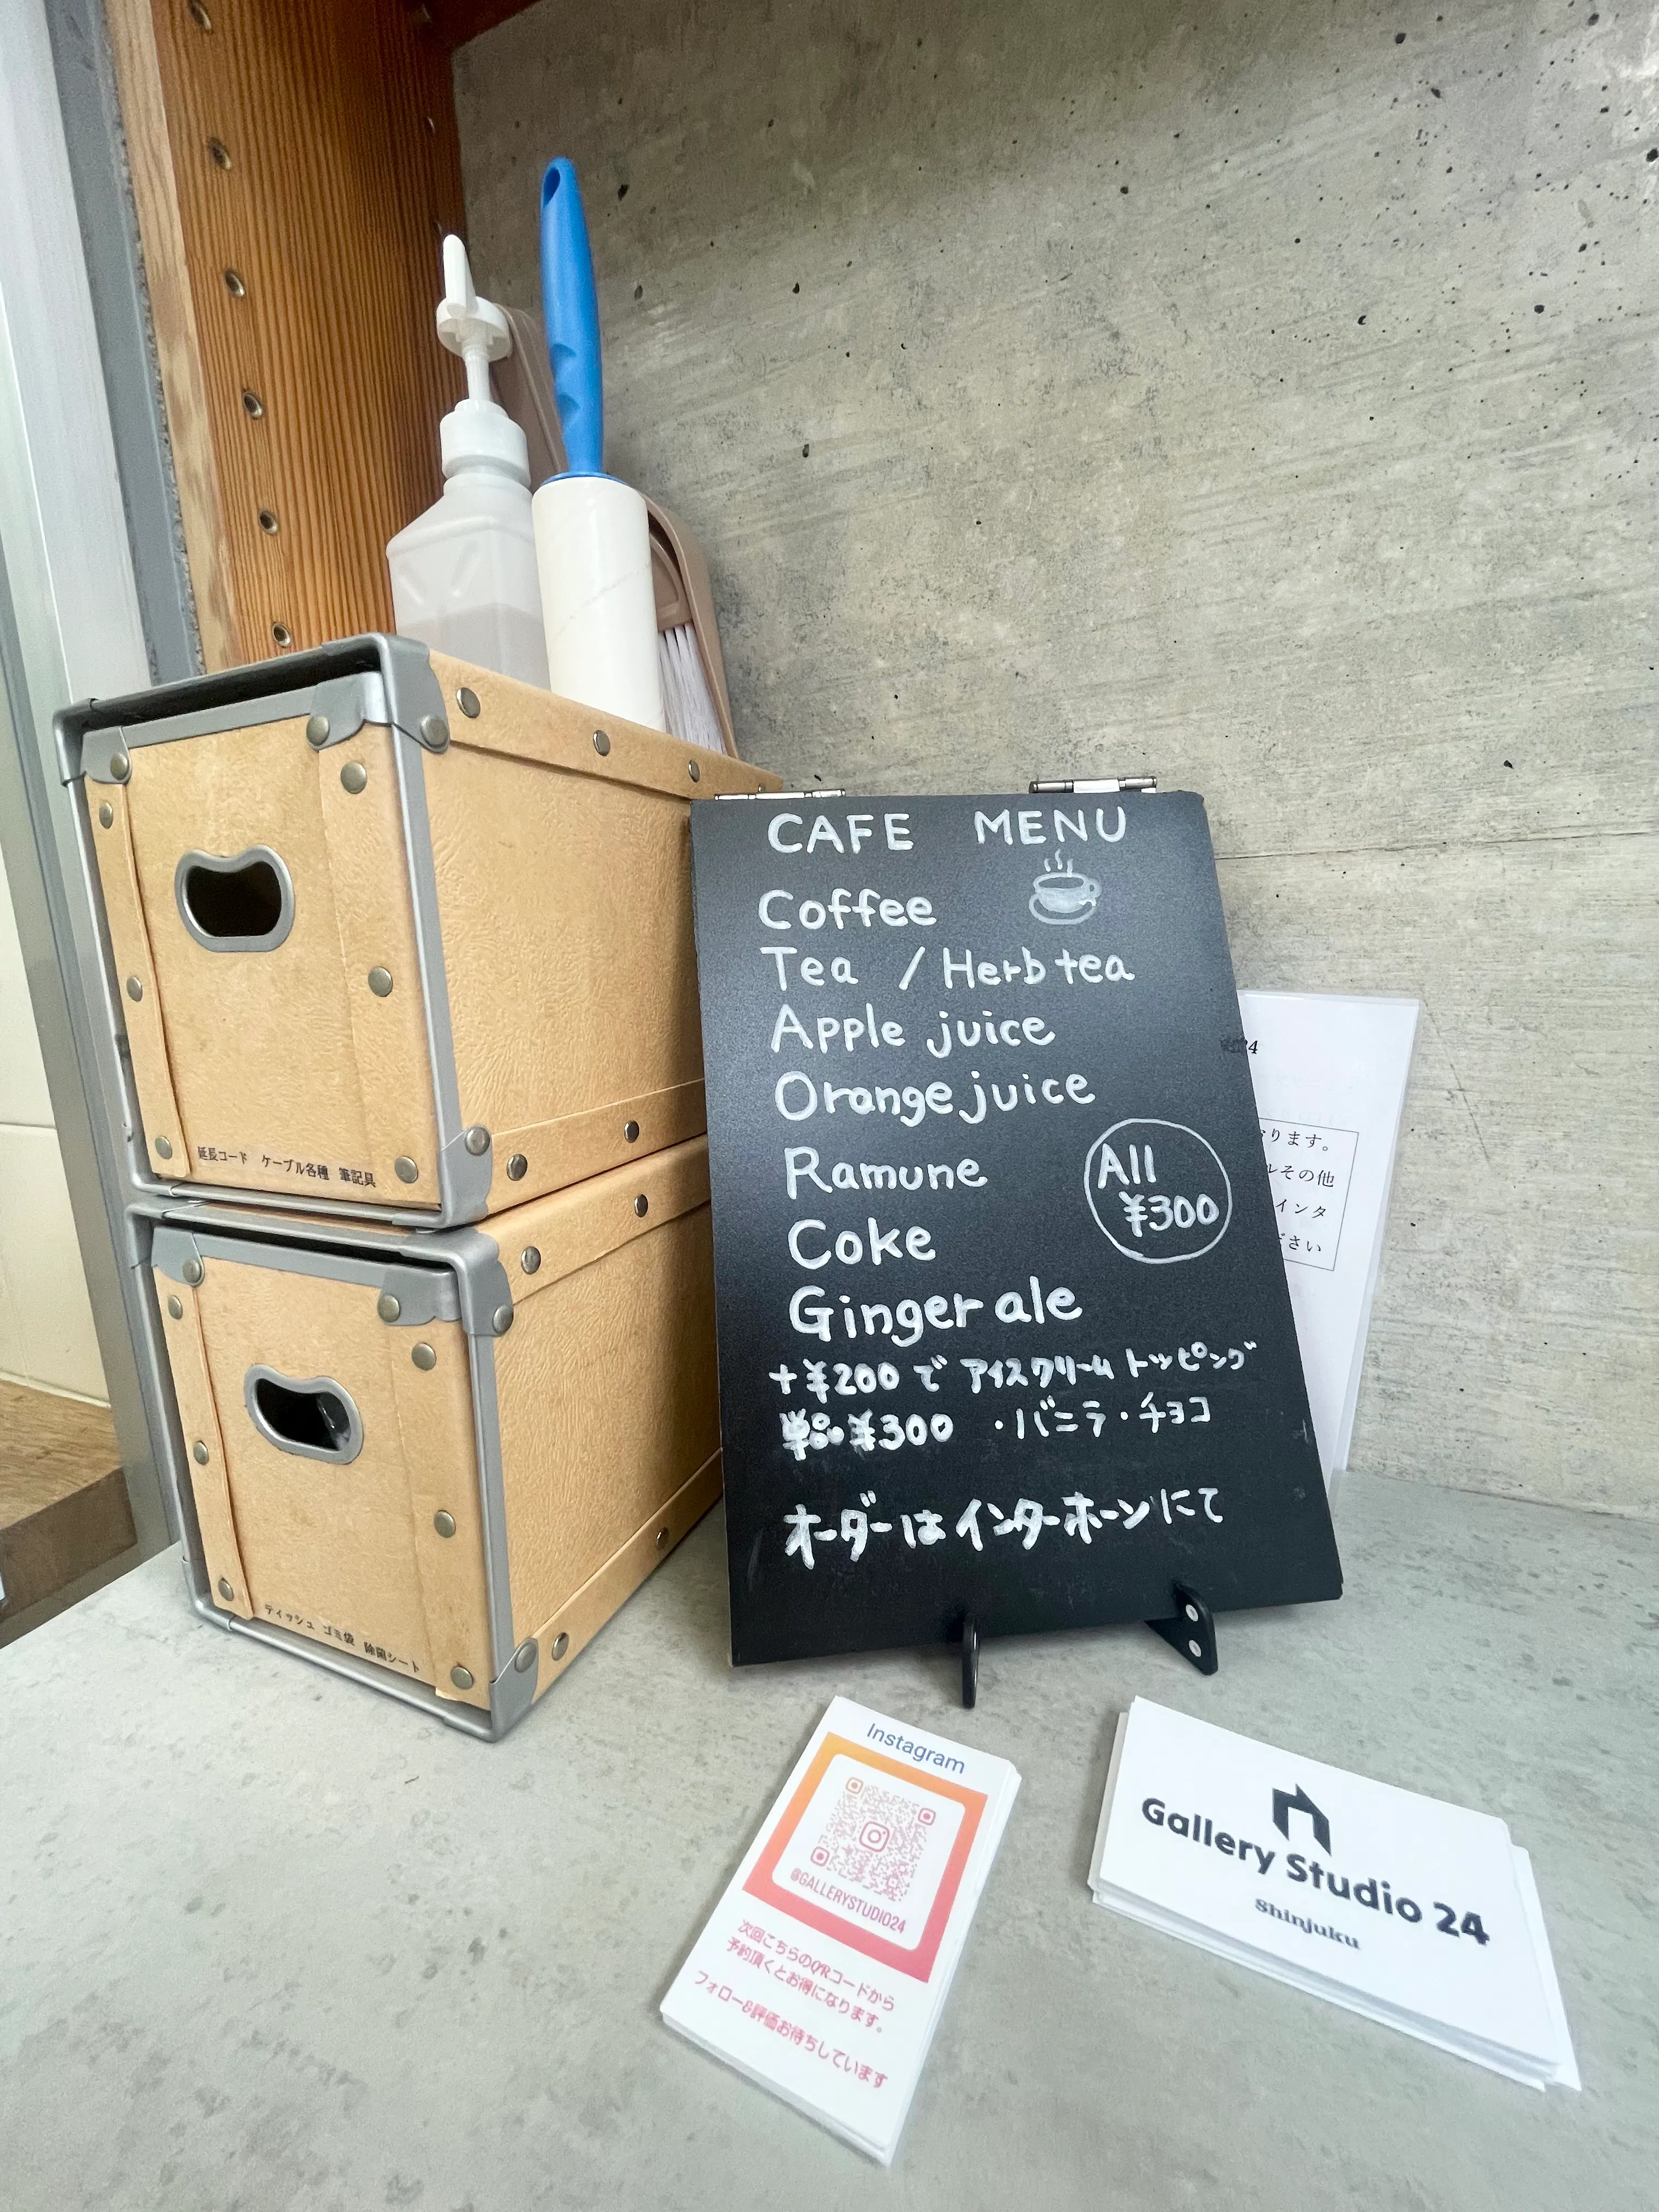 CAFE MENU
Coffee
Tea / Herb tea
Apple juice
Orange juice
Ramune
All
¥300
Coke
Ginger ale
+¥200 で アイスクリーム トッピング
単品¥300 ・バニラ・チョコ
オーダーはインターホーンにて
延長コード ケーブル各種 筆記具
ティッシュ ゴミ袋 除菌シート
24
ります。
ルその他
インタ
ださい
Instagram
@GALLERYSTUDIO24
次回こちらのQRコードから
予約頂くとお得になります。
フォロー&評価お待ちしています
Gallery Studio 24
Shinjuku